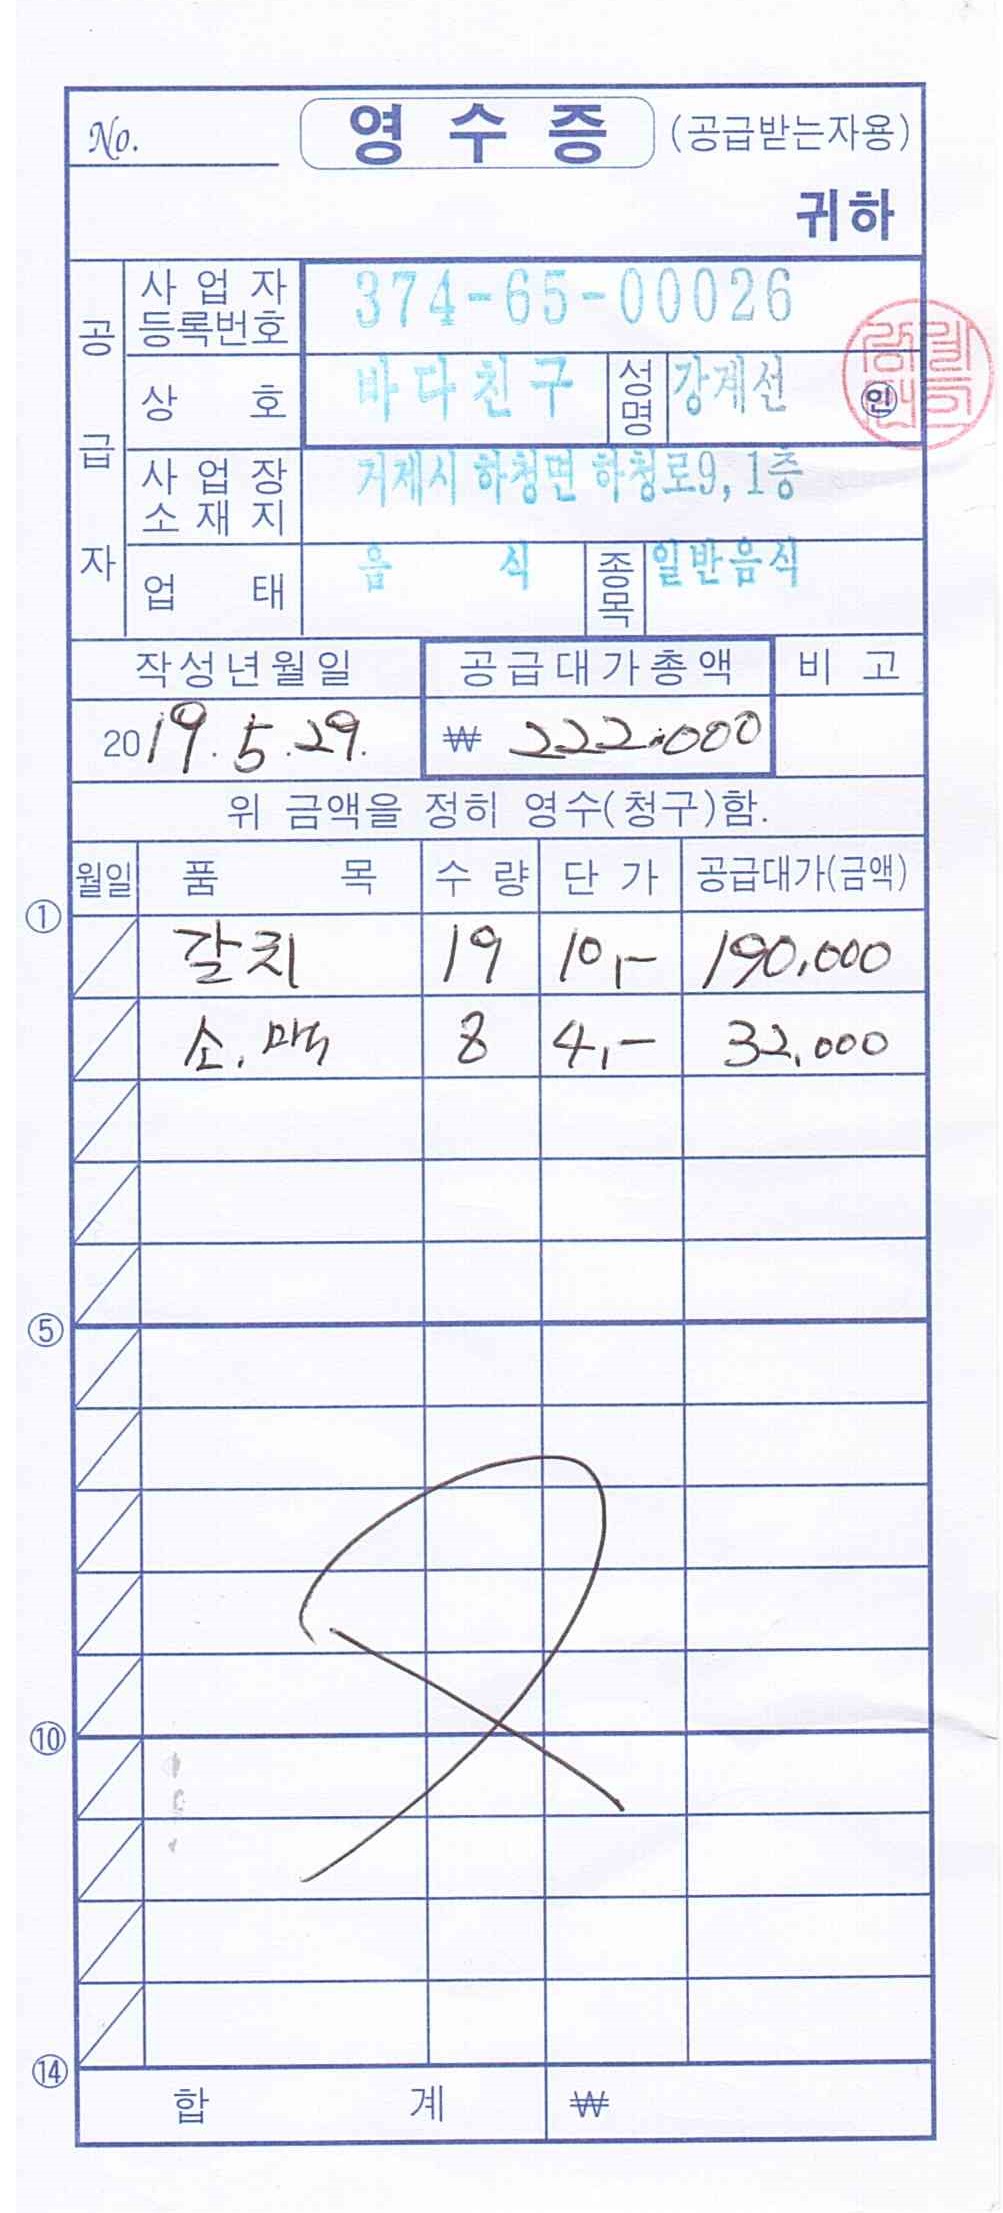 No. 영 수 증 (공급받는자용)
귀하
공급자
사업자등록번호 374-65-00026
상 호 바다친구 성명 강계선 인
사업장소재지 거제시 하청면 하청로9, 1층
업 태 음 식 종목 일반음식
작성년월일 공급대가총액 비 고
2019. 5. 29. ₩ 222.000
위 금액을 정히 영수(청구)함.
월일 품 목 수 량 단 가 공급대가(금액)
① 갈치 19 10,- 190,000
소.맥 8 4,- 32,000
⑤
⑩
⑭
합 계 ₩